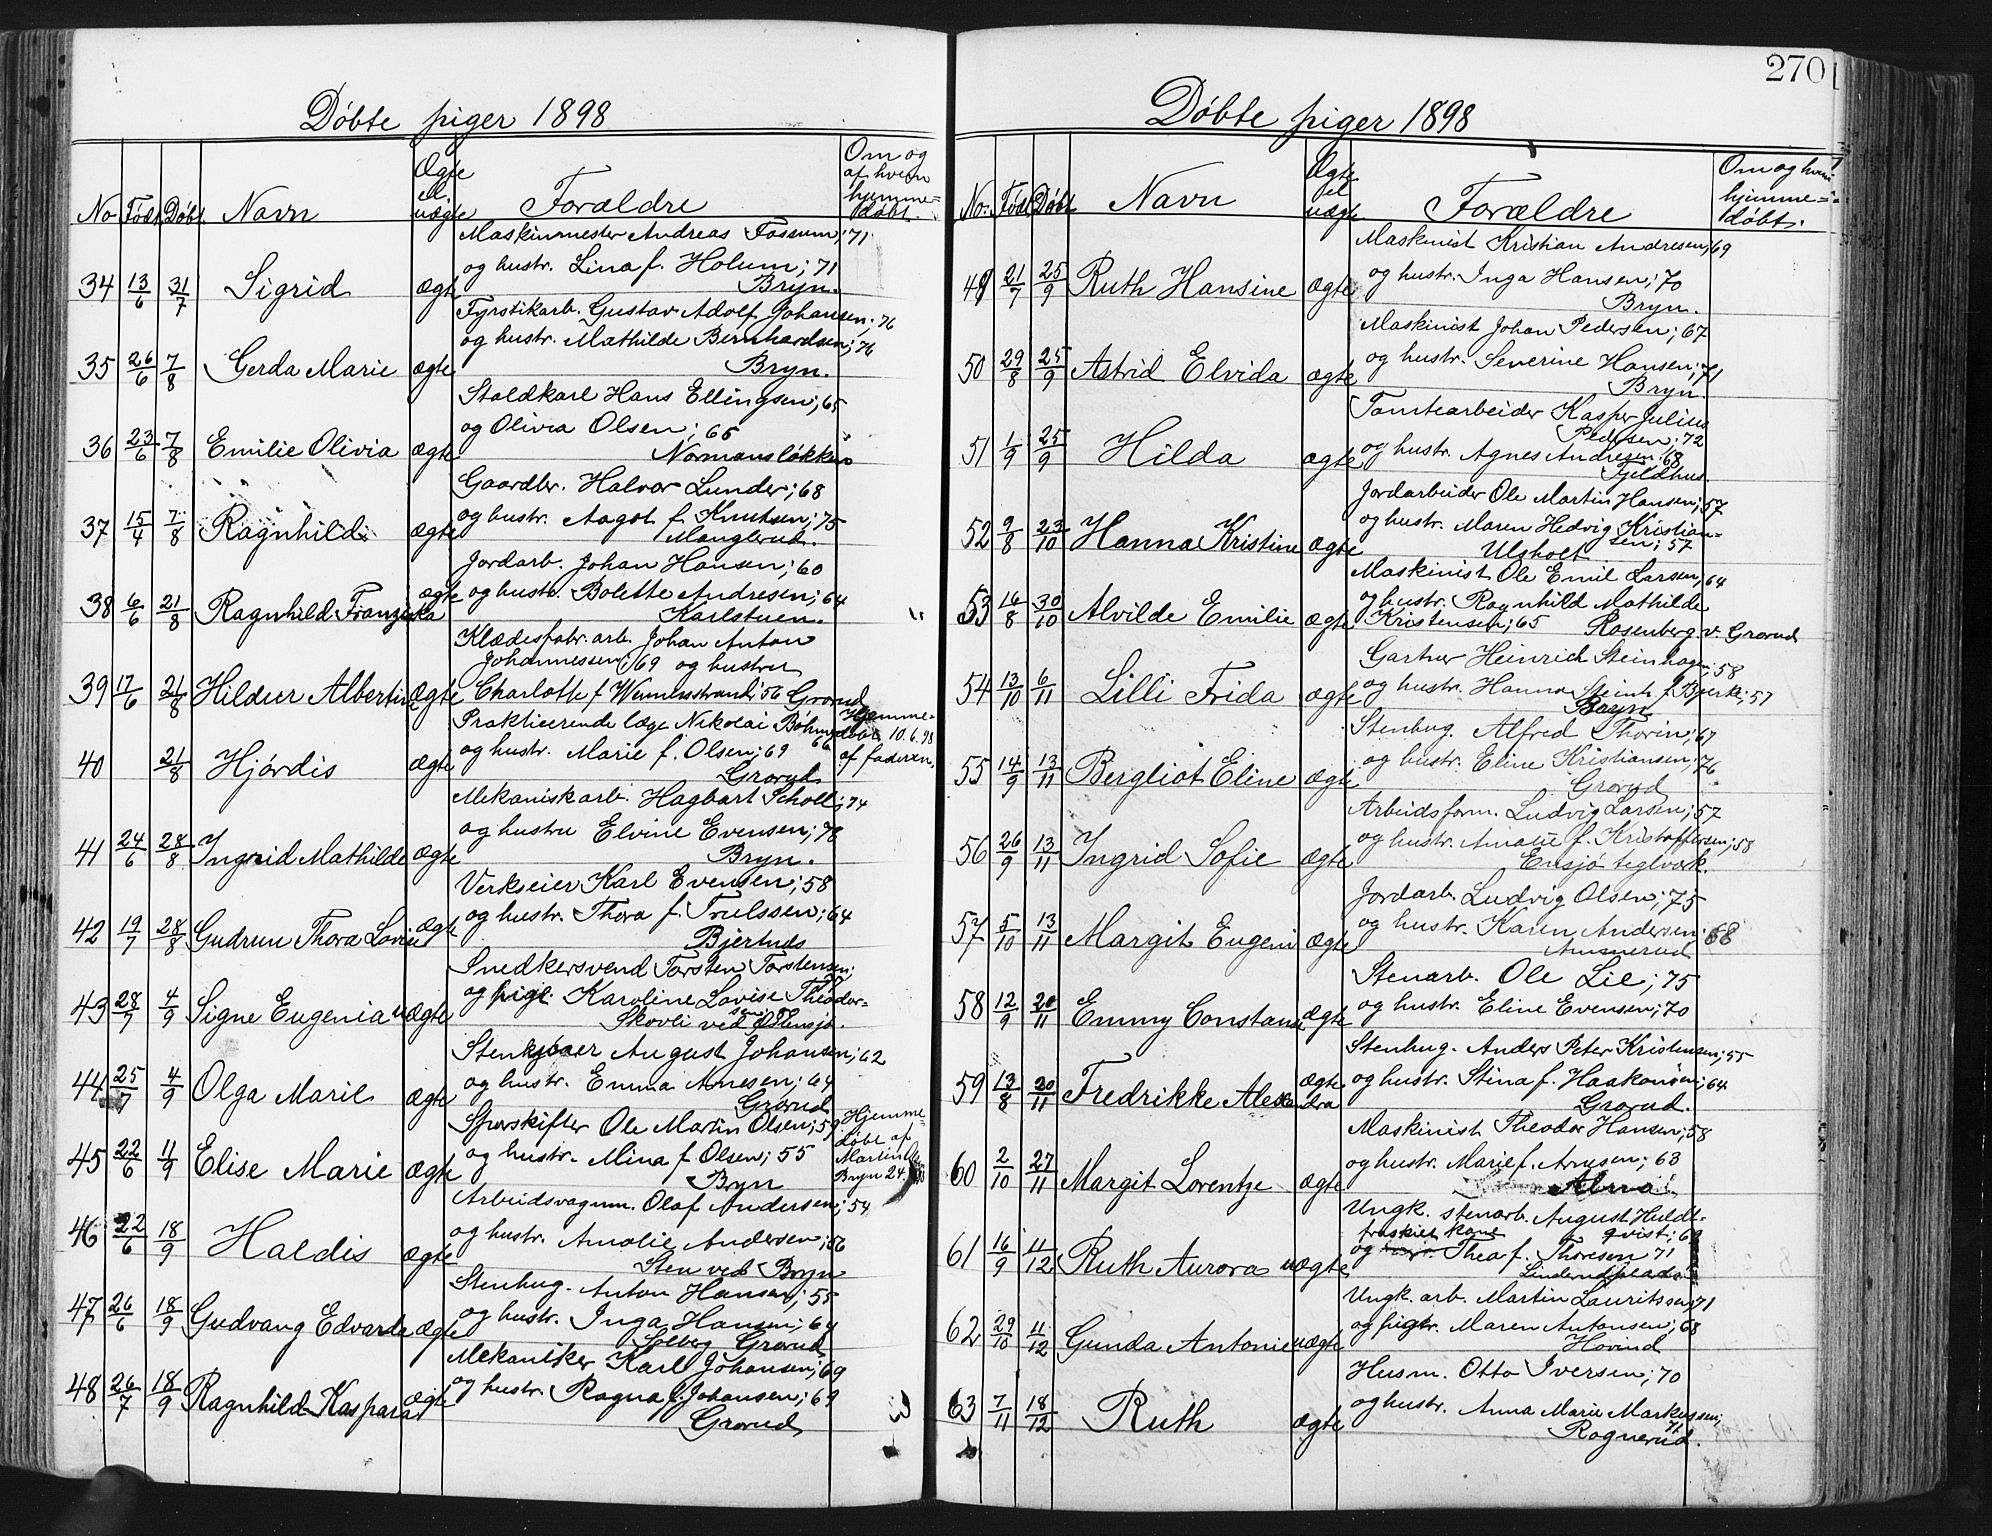 270
Døbte piger 1898
No Født Døbt Navn Ægte el. uægte Forældre Om og af hvem hjemme=døbt.
Maskinmester Andreas Fossum; 71
og hustr. Lina f. Holum; 71
34 13/6 31/7 Sigrid ægte Bryn.
Fyrstikarb. Gustav Adolf Johansen. 76
og hustr. Mathilde Bernhardsen; 76
35 26/6 7/8 Gerda Marie ægte Bryn.
Staldkarl Hans Ellingsen; 65
og Olivia Olsen; 65
36 23/6 7/8 Emilie Olivia ægte Normansløkken
Gaardbr. Halvor Lunder; 68
og hustr. Aagot f. Knutsen; 75
37 15/4 7/8 Ragnhild ægte Manglerud.
Jordarb. Johan Hansen; 60
og hustr. Bolette Andresen; 64
38 6/6 21/8 Ragnhild Franziska ægte Karlstuen. "
Klædesfabr. arb. Johan Anton
Johannessen; 69 og hustru
39 17/6 21/8 Hildur Albertine Ægte Charlotte f 56 Grorud
Prakticerende læge Nikolai Bøhmer 66 Hjemme=
og hustr. Marie f. Olsen; 69 døbt 10.6.98
40 21/8 Hjørdis ægte Grorud af faderen.
Mekaniskarb. Hagbart Scholl; 74
og hustru Elvine Evensen; 78
41 24/6 28/8 Ingrid Mathilde ægte Bryn.
Verkseier Karl Evensen; 58
og hustr. Thora f. Trulssen; 64
42 19/7 28/8 Gudrun Thora Lovise ægte Bjertnes
Snedkersvend Torsten Torstensen;
og pige. Karoline Lovise Theodor=
43 28/7 4/9 Signe Eugenia uægte sen; Skovli ved Østensjø.
Stenkjører August Johansen; 62
og hustr. Emma Arnesen; 64
44 25/7 4/9 Olga Marie ægte Grorud
Sporskifter Ole Martin Olsen; 59 Hjemme=
og hustr. Mina f. Olsen; 55 døbt af
45 22/6 11/9 Elise Marie ægte Bryn Martin Bryn 24
Arbeidsvagnm. Olaf Andersen; 54
og hustr. Amalie Andersen; 56
46 22/6 18/9 Haldis ægte Sten ved Bryn
Stenhug. Anton Hansen; 55
og hustr. Inga Hansen; 64
47 26/6 18/9 Gudvang Edvarda ægte Solberg Grorud
Mekaniker Karl Johansen; 69
og hustr. Ragna f. Johansen; 69
48 26/7 18/9 Ragnhild Kaspara ægte Grorud
Døbte piger 1898
No. Født Døbt Navn Ægte el uægte Forældre Om og hvem hjemme=døbt.
Maskinist Kristian Andresen; 69
og hustr. Inga Hansen; 70
49 21/7 25/9 Ruth Hansine ægte Bryn.
Maskinist Johan Pedersen; 67
og hustr. Severine Hansen; 71
50 29/8 25/9 Astrid Elvida ægte Bryn.
Tomtearbeider Kasper Julius
Pedersen; 72
51 1/9 25/9 Hilda ægte og hustr. Agnes Andresen 68
Fjeldhus.
Jordarbeider Ole Martin Hansen; 57
og hustr. Maren Hedvig Kristian=
52 9/8 23/10 Hanna Kristine ægte Ulsholt sen; 57
Maskinist Ole Emil Larsen, 64
og hustr. Ragnhild Mathilde
53 16/8 30/10 Alvilde Emilie ægte Kristensen; 65 Rosenberg v. Grorud
Gartner Heinrich Steinhagen; 58
54 13/10 6/11 Lilli Frida ægte og hustr. Hanna Steinh. f. Bjerke; 57
Bryn
Stenhug. Alfred Thorin; 67
og hustr. Eline Kristiansen; 76
55 14/9 13/11 Bergliot Eline ægte Grorud
Arbeidsform. Ludvig Larsen; 57
og hustr. Amalie f. Kristoffersen; 58
56 26/9 13/11 Ingrid Sofie ægte Ensjø teglverk.
Jordarb. Ludvig Olsen; 75
og hustr. Karen Andersen; 68
57 5/10 13/11 Margit Eugeni ægte Ammerud
Stenarb. Ole Lie; 75
58 12/9 20/11 Emmy Constanse ægte og hustr. Eline Evensen; 70
Stenhug. Anders Peter Kristensen; 55
59 13/8 20/11 Fredrikke Alexandra ægte og hustr. Stina f. Haakonsen; 64
Grorud.
Maskinist Theodor Hansen; 58
og hustr. Marie f. Arnesen; 63
60 2/10 27/11 Margit Lorentze ægte Alna
Ungk. stenarb. August Huldt=
fraskilt kone qvist; 69
61 16/9 11/12 Ruth Aurora uægte og Thea f. Thoresen 71
Linderudplads
Ungk. arb. Martin Lauritssen 71
og pige. Maren Antonsen; 68
62 29/10 11/12 Gunda Antonie uægte Hovind
Husm. Otto Iversen; 70
og hustr. Anna Marie Markussen;
63 7/11 18/12 Ruth ægte 71 Rognerud.